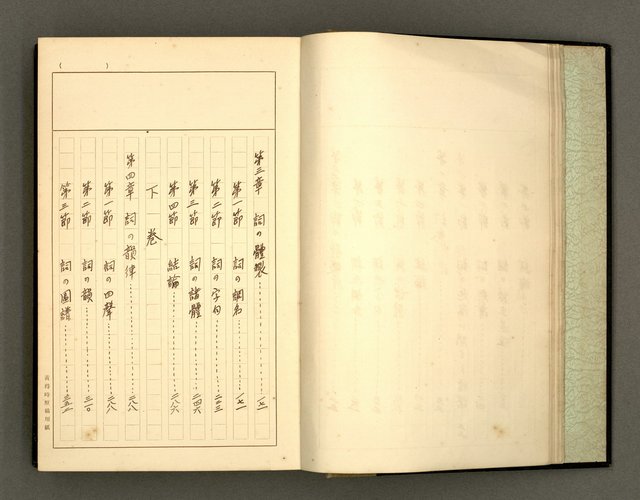 第三章 詞の體製…………一七一
第一節 詞の調名…………一七一
第二節 詞の字句…………二二三
第三節 詞の諸體…………二四六
第四節 結論…………二八六
下巻
第四章 詞の韻律…………二八八
第一節 詞の四聲…………二八八
第二節 詞の韻…………三一〇
第三節 詞の圖譜…………三五二
黃得時原稿用紙